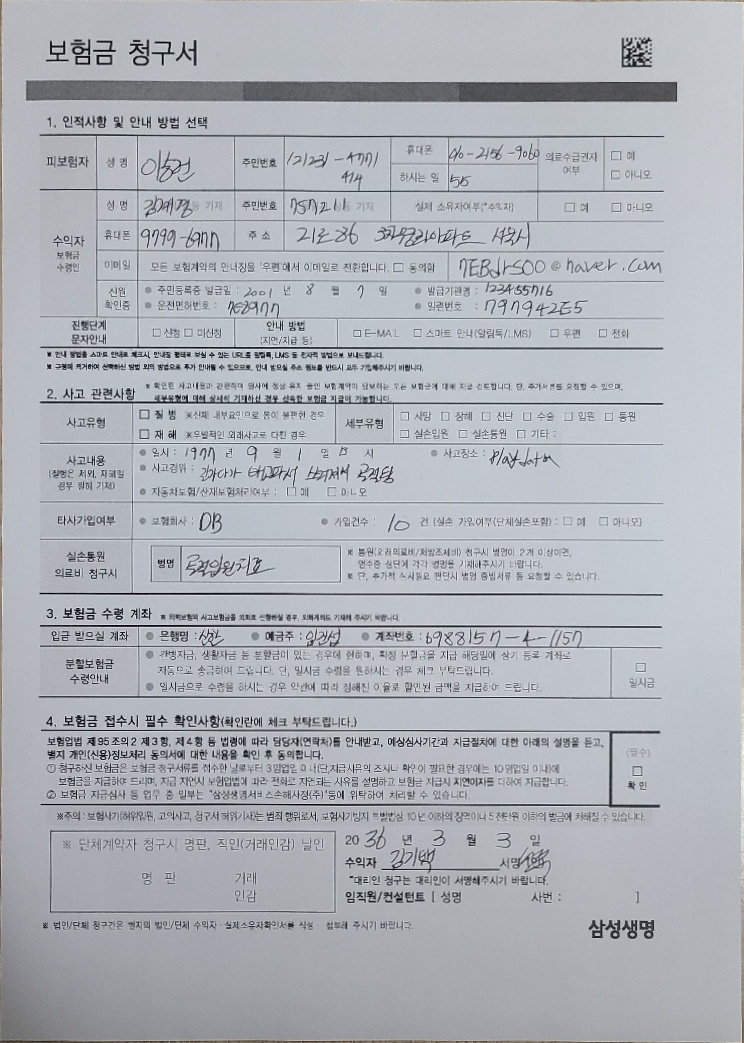 보험금 청구서
1. 인적사항 및 안내 방법 선택
피보험자 성 명 주민번호 121231-4771 휴대폰 010-2156-9060 의료수급권자 여부 □ 예 □ 아니오
474 하시는 일
수익자 보험금 수령인 성 명 주민번호 757211 실제 소유자여부(*수익자) □ 예 □ 아니오
휴대폰 9797-6977 주 소 아파트
이메일 모든 보험계약의 안내장을 '우편'에서 이메일로 전환합니다. □ 동의함 @naver.com
신원 확인증 ● 주민등록증 발급일 : 2001 년 8 월 7 일 ● 발급기관명 : 123455716
● 운전면허번호 : 7E8977 ● 일련번호 : 797942E5
진행단계 문자안내 □ 신청 □ 미신청 안내 방법 (지연/지급 등) □ E-MAIL □ 스마트 안내(알림톡/LMS) □ 우편 □ 전화
※ 안내 방법을 스마트 안내로 체크시, 안내장 형태로 보실 수 있는 URL을 알림톡, LMS 등 전자적 방법으로 보내드립니다.
※ 규정에 의거하여 선택하신 방법 외의 방법으로 추가 안내될 수 있으므로, 안내 받으실 주소 정보를 반드시 모두 기입해주시기 바랍니다.
2. 사고 관련사항 ※ 확인된 사고내용과 관련하여 당사에 정상 유지 중인 보험계약이 담보하는 모든 보험금에 대해 지급 검토합니다. 단, 추가서류를 요청할 수 있으며,
세부유형에 대해 상세히 기재하신 경우 신속한 보험금 지급이 가능합니다.
사고유형 □ 질 병 ※신체 내부요인으로 몸이 불편한 경우 세부유형 □ 사망 □ 장해 □ 진단 □ 수술 □ 입원 □ 통원
□ 재 해 ※우발적인 외래사고로 다친 경우 □ 실손입원 □ 실손통원 □ 기타 :
사고내용 (질병은 제외, 재해일 경우 필히 기재) ● 일시 : 1977 년 9 월 1 일 13 시 ● 사고장소 :
● 사고경위 :
● 자동차보험/산재보험처리여부 : □ 예 □ 아니오
타사가입여부 ● 보험회사 : DB ● 가입건수 : 10 건 (실손 가입여부(단체실손포함) : □ 예 □ 아니오)
실손통원 의료비 청구시 병명 ※ 통원(외래의료비/처방조제비) 청구시 병명이 2개 이상이면,
영수증 상단에 각각 병명을 기재해주시기 바랍니다.
※ 단, 추가적 심사필요 판단시 병명 증빙서류 등 요청할 수 있습니다.
3. 보험금 수령 계좌 ※ 외화보험의 사고보험금을 외화로 신청하실 경우, 외화계좌도 기재해 주시기 바랍니다.
입금 받으실 계좌 ● 은행명 : 신한 ● 예금주 : 임건섭 ● 계좌번호 : 6988157-4-1157
분할보험금 수령안내 ● 간병자금, 생활자금 등 분할금이 있는 경우에 한하며, 확정 분할금을 지급 해당일에 상기 등록 계좌로
자동으로 송금하여 드립니다. 단, 일시금 수령을 원하시는 경우 체크 부탁드립니다. □
● 일시금으로 수령을 하시는 경우 약관에 따라 정해진 이율로 할인된 금액을 지급하여 드립니다. 일시금
4. 보험금 접수시 필수 확인사항(확인란에 체크 부탁드립니다.)
보험업법 제95조의2 제3항, 제4항 등 법령에 따라 담당자(연락처)를 안내받고, 예상심사기간과 지급절차에 대한 아래의 설명을 듣고, (필수)
별지 개인(신용)정보처리 동의서에 대한 내용을 확인 후 동의합니다. □
① 청구하신 보험금은 보험금 청구서류를 접수한 날로부터 3영업일 이내(단,지급사유의 조사나 확인이 필요한 경우에는 10영업일 이내)에 확 인
보험금을 지급하여 드리며, 지급 지연시 보험업법에 따라 전화로 지연되는 사유를 설명하고 보험금 지급시 지연이자를 더하여 지급합니다.
② 보험금 지급심사 등 업무 중 일부는 "삼성생명서비스손해사정(주)"등에 위탁하여 처리할 수 있습니다.
※주의 : 보험사기(허위입원, 고의사고, 청구서 허위기재)는 범죄 행위로서, 보험사기방지 특별법상 10년 이하의 징역이나 5천만원 이하의 벌금에 처해질 수 있습니다.
※ 단체계약자 청구시 명판, 직인(거래인감) 날인
명 판 거래 인감
2036 년 3 월 3 일
수익자 김기백 서명
*대리인 청구는 대리인이 서명해주시기 바랍니다.
임직원/컨설턴트 [ 성명 사번 : ]
※ 법인/단체 청구건은 별지의 법인/단체 수익자 · 실제소유자확인서를 작성 · 첨부해 주시기 바랍니다.
삼성생명